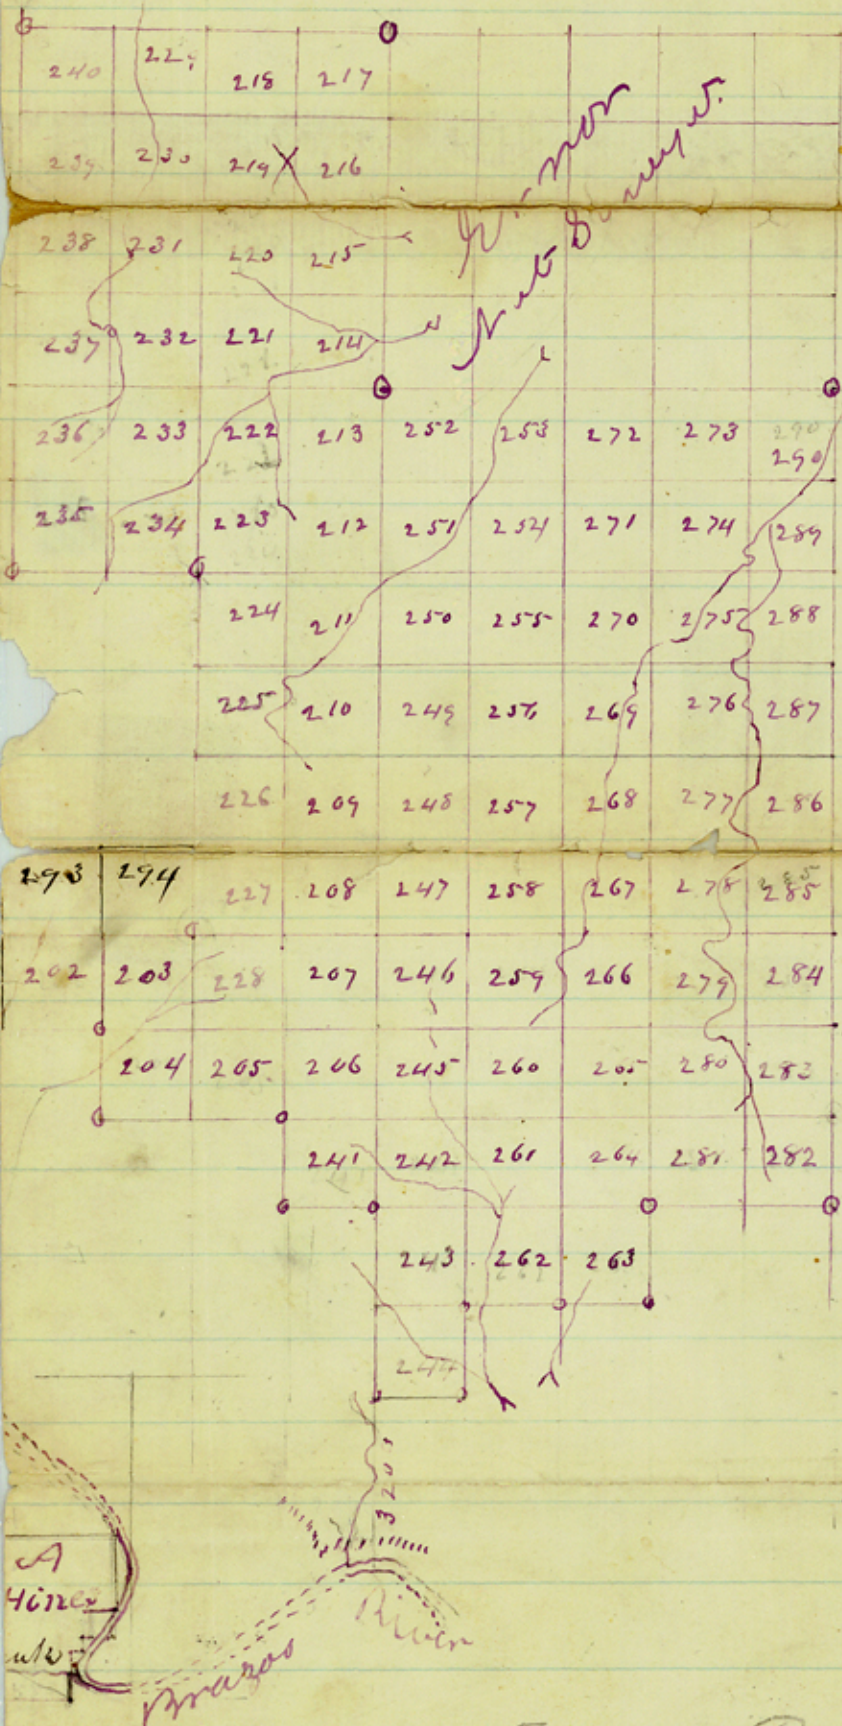 240 229 218 217
239 230 219 216
238 231 220 215
237 232 221 214
236 233 222 213 252 253 272 273 290
290
235 234 223 212 251 254 271 274 289
224 211 250 255 270 275 288
225 210 249 256 269 276 287
226 209 248 257 268 277 286
293 294 227 208 247 258 267 278 285
202 203 228 207 246 259 266 279 284
204 205 206 245 260 265 280 283
241 242 261 264 281 282
243 262 263
244
3201
A
Hines
Brazos River